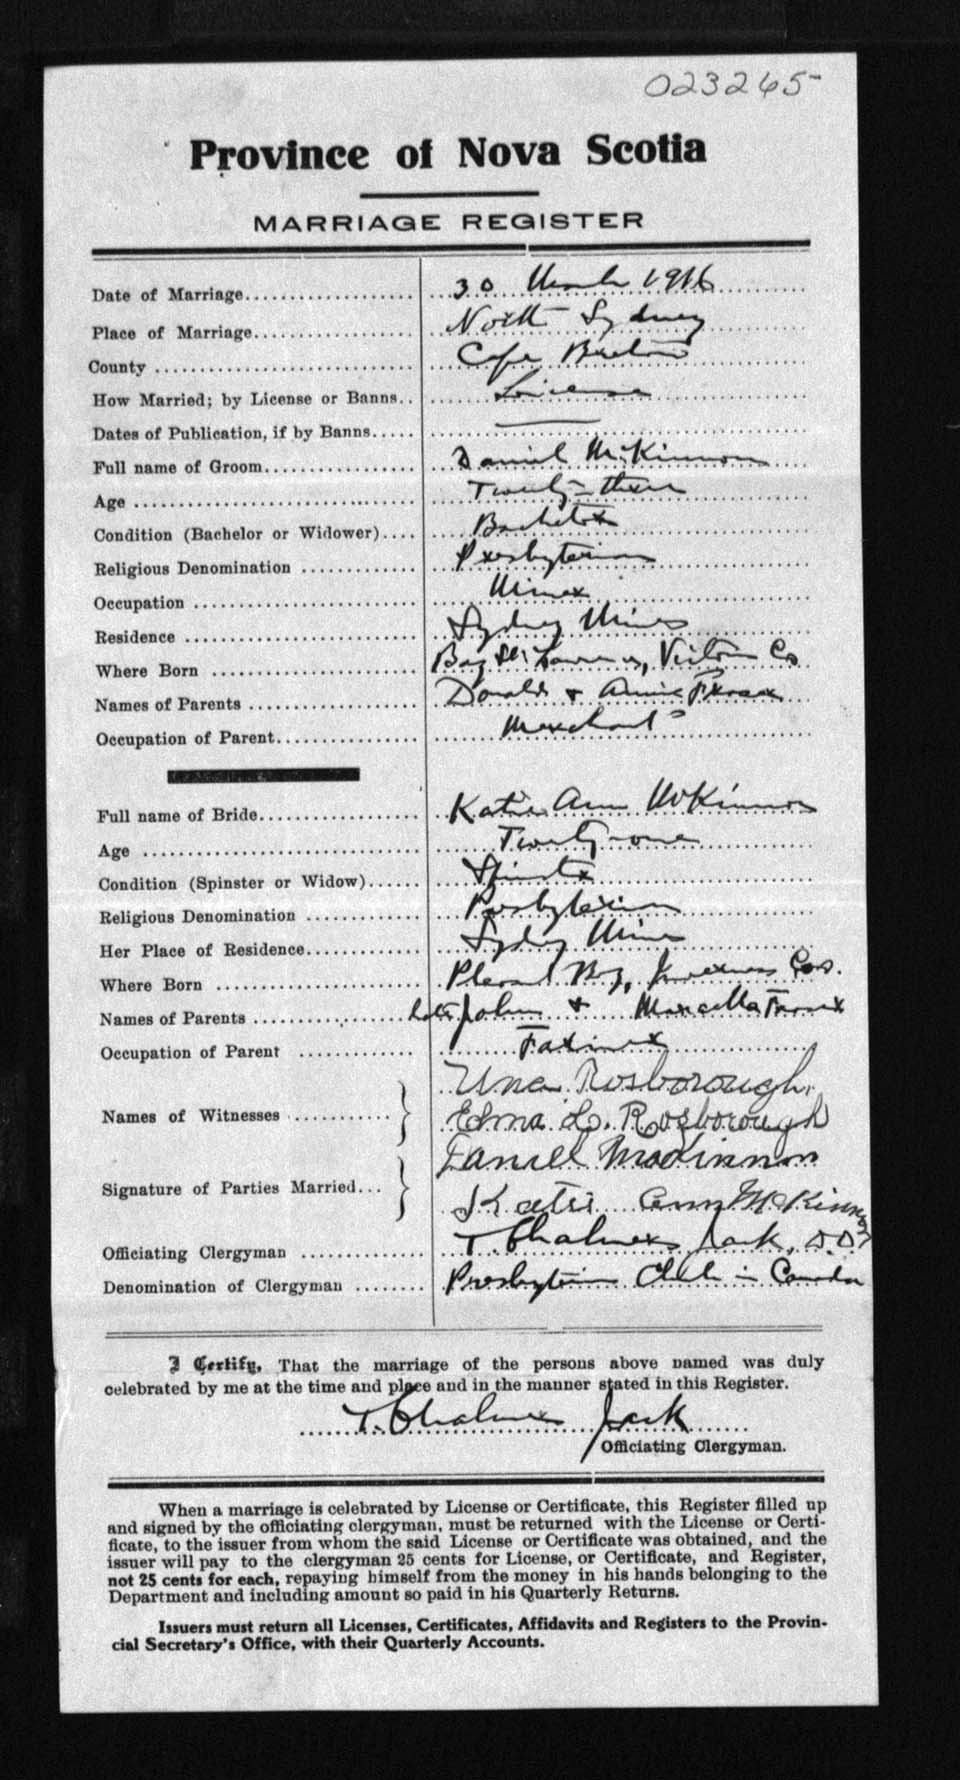 023265
Province of Nova Scotia
MARRIAGE REGISTER
Date of Marriage 30 March 1916
Place of Marriage North Sydney
County Cape Breton
How Married; by License or Banns License
Dates of Publication, if by Banns ——
Full name of Groom Daniel McKinnon
Age Twenty-three
Condition (Bachelor or Widower) Bachelor
Religious Denomination Presbyterian
Occupation Miner
Residence Sydney Mines
Where Born Bay St Lawrence, Victoria Co
Names of Parents Donald & Annie Fraser
Occupation of Parent Merchant
Full name of Bride Katie Ann McKinnon
Age Twenty-one
Condition (Spinster or Widow) Spinster
Religious Denomination Presbyterian
Her Place of Residence Sydney Mines
Where Born Pleasant Bay, Inverness Co.
Names of Parents John & Marcella Fraser
Occupation of Parent Farmer
Una Rosborough
Names of Witnesses Edna L. Rosborough
Daniell MacKinnon
Signature of Parties Married Katie Ann McKinnon
Officiating Clergyman T. Chalmers Jack, D.D.
Denomination of Clergyman Presbyterian Church in Canada
I Certify, That the marriage of the persons above named was duly
celebrated by me at the time and place and in the manner stated in this Register.
T. Chalmers Jack
Officiating Clergyman.
When a marriage is celebrated by License or Certificate, this Register filled up
and signed by the officiating clergyman, must be returned with the License or Certi-
ficate, to the issuer from whom the said License or Certificate was obtained, and the
issuer will pay to the clergyman 25 cents for License, or Certificate, and Register,
not 25 cents for each, repaying himself from the money in his hands belonging to the
Department and including amount so paid in his Quarterly Returns.
Issuers must return all Licenses, Certificates, Affidavits and Registers to the Provin-
cial Secretary's Office, with their Quarterly Accounts.